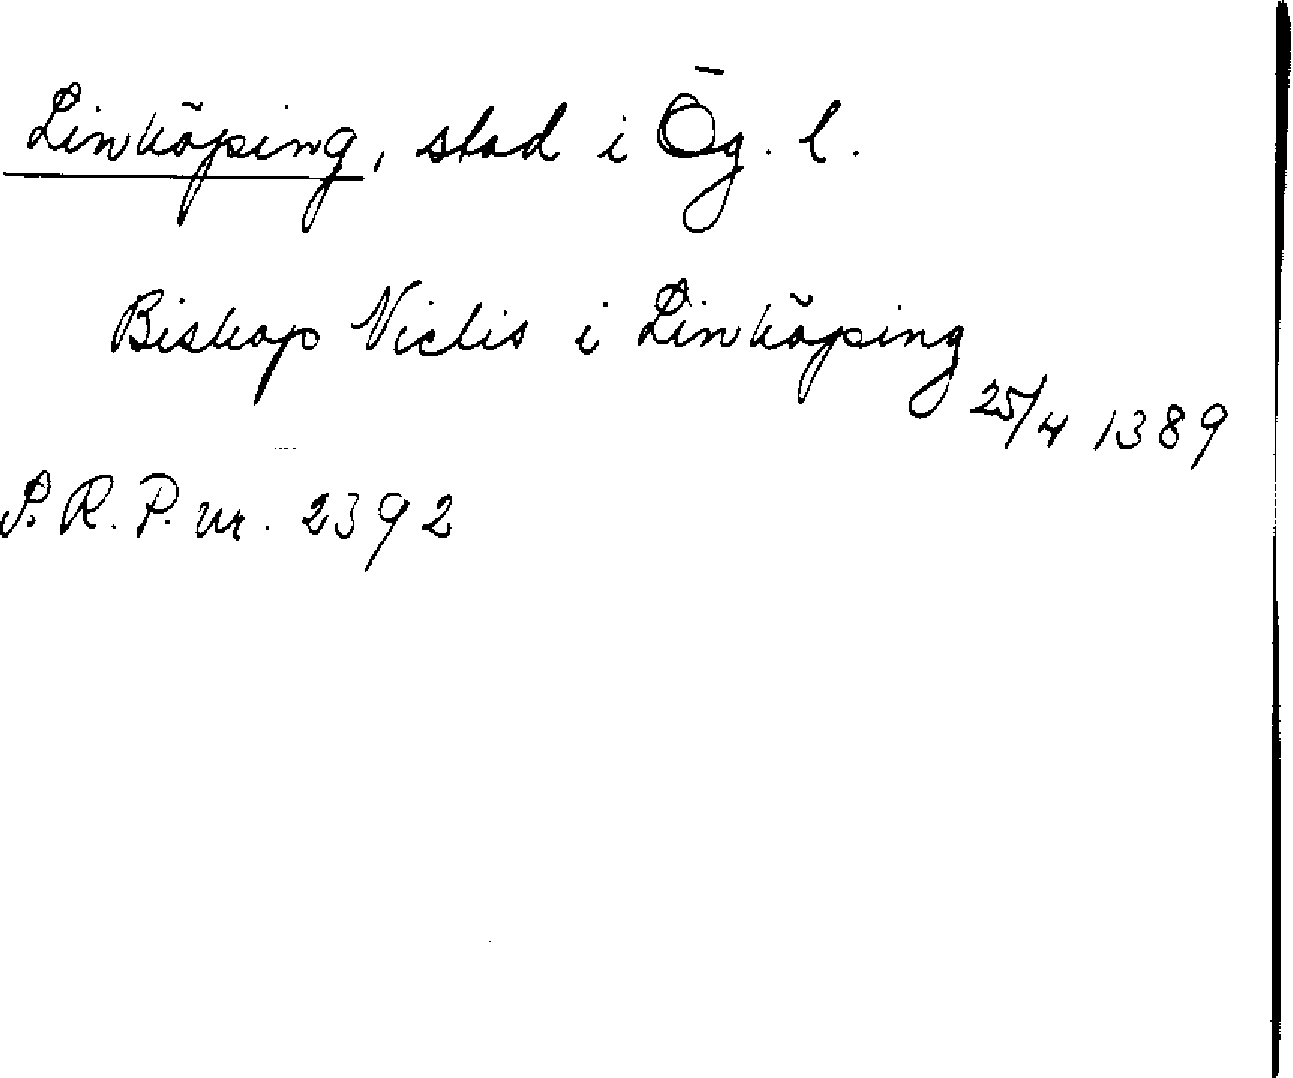 Linköping, stad i Ög. l.
Biskop Niclis i Linköping
25/4 1389
S. R. P. nr. 2392